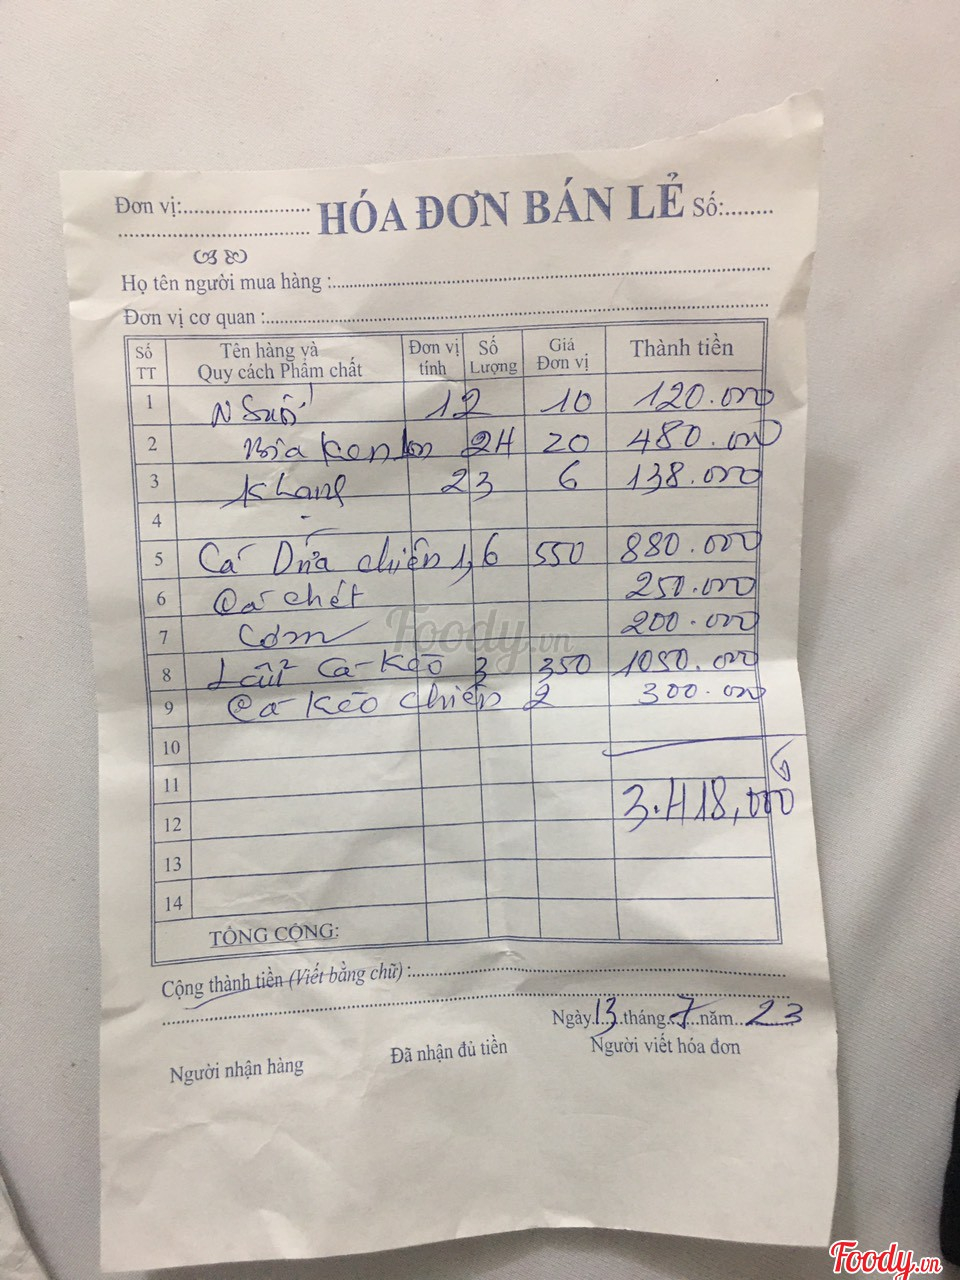 Đơn vị:........................ HÓA ĐƠN BÁN LẺ Số:........
Họ tên người mua hàng :
Đơn vị cơ quan :
Số TT Tên hàng và Quy cách Phẩm chất Đơn vị tính Số Lượng Giá Đơn vị Thành tiền
1 N Suối 12 10 120.000
2 Bia Ken lon 24 20 480.000
3 Khăn 23 6 138.000
4
5 Cá Dứa chiên 1,6 550 880.000
6 Cá chét 250.000
7 Cơm 200.000
8 Lẩu Cá Kèo 3 350 1050.000
9 Cá Kèo chiên 2 300.000
10
11
12 3.418,000
13
14
TỔNG CỘNG:
Cộng thành tiền (Viết bằng chữ) :
Ngày 13 tháng 7 năm 23
Người nhận hàng Đã nhận đủ tiền Người viết hóa đơn
Foody.vn
Foody.vn